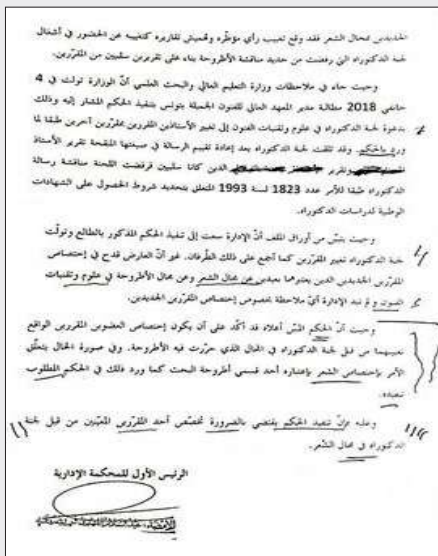 الجديدين بمجال الشعر فقد وقع تغييب رأي مؤطّره وتهميش تقاريره كتغييبه عن الحضور في أشغال
لجنة الدكتوراه التي رفضت من جديد مناقشة الأطروحة بناء على تقريرين سلبيين من المقررين.
وحيث جاء في ملاحظات وزارة التعليم العالي والبحث العلمي أنّ الوزارة تولت في 4
جانفي 2018 مطالبة مدير المعهد العالي للفنون الجميلة بتونس بتنفيذ الحكم المشار إليه وذلك
بدعوة لجنة الدكتوراه في علوم وتقنيات الفنون إلى تغيير الأستاذين المقررين بمقررين آخرين طبقا لما
ورد بالحكم. وقد تلقت لجنة الدكتوراه بعد إعادة تقييم الرسالة في صيغتها المنقحة تقرير الأستاذ
وتقرير الذين كانا سلبيين فرفضت اللجنة مناقشة رسالة
الدكتوراه طبقا للأمر عدد 1823 لسنة 1993 المتعلق بتحديد شروط الحصول على الشهادات
الوطنية لدراسات الدكتوراه.
وحيث يتبيّن من أوراق الملف أنّ الإدارة سعت إلى تنفيذ الحكم المذكور بالطالع وتولّت
لجنة الدكتوراه تغيير المقررين كما أجمع على ذلك الطرفان. غير أنّ العارض قدح في إختصاص
المقررين الجديدين الذين يعتبرهما بعيدين عن مجال الشعر وعن مجال الأطروحة في علوم وتقنيات
الفنون ولم تبد الإدارة أيّ ملاحظة بخصوص إختصاص المقررين الجديدين.
وحيث أنّ الحكم المبيّن أعلاه قد أكّد على أن يكون إختصاص العضوين المقررين الواقع
تعيينهما من قبل لجنة الدكتوراه في المجال الذي حررت فيه الأطروحة. وفي صورة الحال يتعلّق
الأمر بإختصاص الشعر بإعتباره أحد قسمي أطروحة البحث كما ورد ذلك في الحكم المطلوب
تنفيذه.
وعليه فإنّ تنفيذ الحكم يقتضي بالضرورة تخصّص أحد المقررين المعيّنين من قبل لجنة
الدكتوراه في مجال الشعر.
الرئيس الأول للمحكمة الإدارية